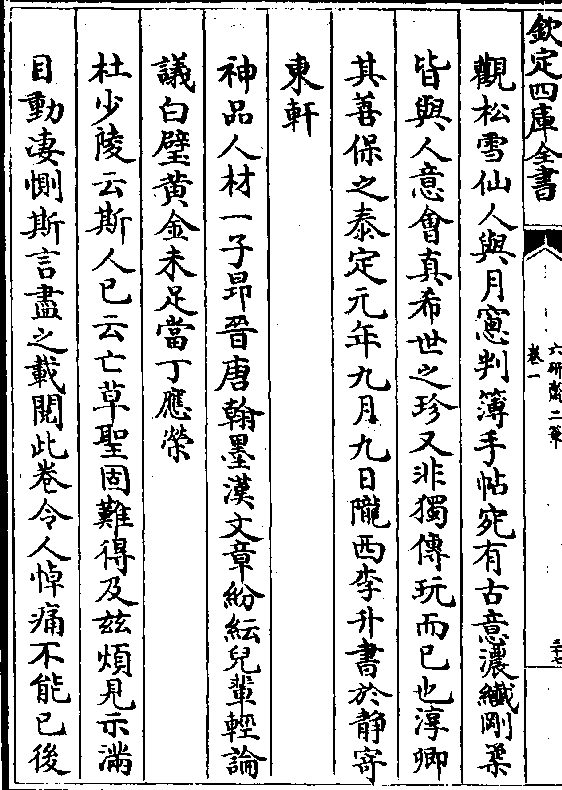 欽定四庫全書
六研齋二筆
卷一
三十七
觀松雪仙人與月窻判簿手帖宛有古意濃纖剛柔
皆與人意會真希世之珍又非獨傳玩而已也淳卿
其善保之泰定元年九月九日隴西李升書於静寄
東軒
神品人材一子昻晉唐翰墨漢文章紛紜兒輩輕論
議白璧黄金未足當丁應榮
杜少陵云斯人已云亡草聖固難得及兹煩見示滿
目動淒惻斯言盡之載閱此卷令人悼痛不能已後